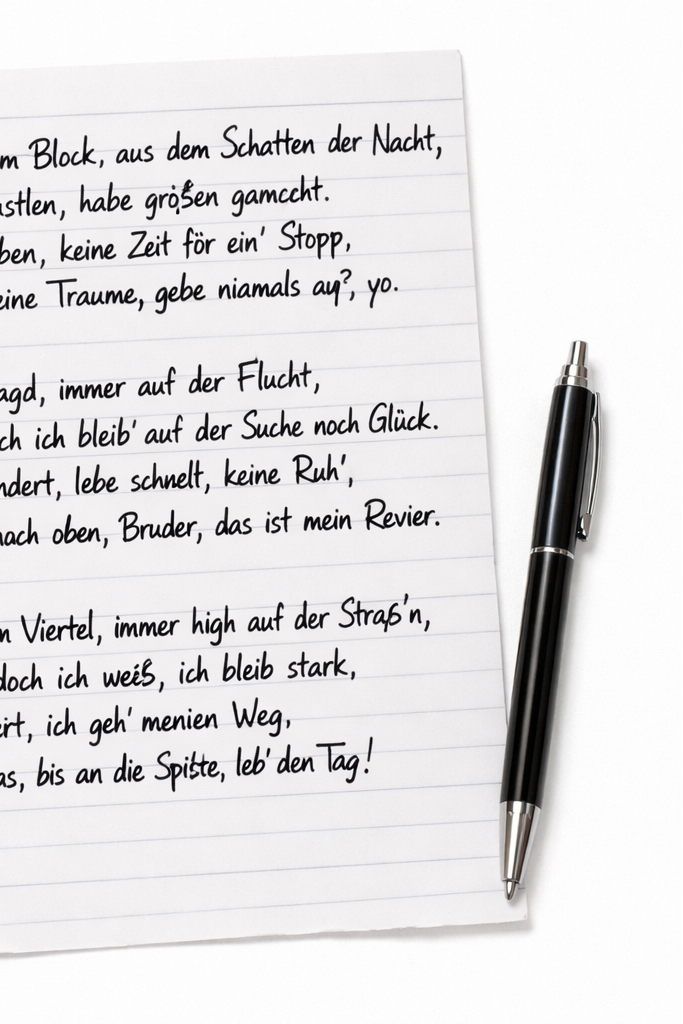 m Block, aus dem Schatten der Nacht,
stlen, habe größen gamccht.
ben, keine Zeit för ein' Stopp,
eine Traume, gebe niamals
yo.
agd, immer auf der Flucht,
ch ich bleib' auf der Suche noch Glück.
ndert, lebe schnelt, keine Ruh',
nach oben, Bruder, das ist mein Revier.
n Viertel, immer high auf der Straß'n,
doch ich weiß, ich bleib stark,
ert, ich geh' menien Weg,
as, bis an die Spißte, leb' den Tag!